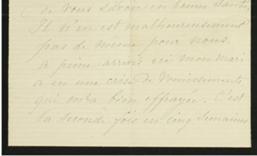 de vous savoir en bonne santé,
Il n'en est malheureusement
pas de même pour nous.
à peine arrivé ici mon mari
a eu une crise de vomissements
qui m'a bien effrayée. C'est
la seconde fois en cinq semaines